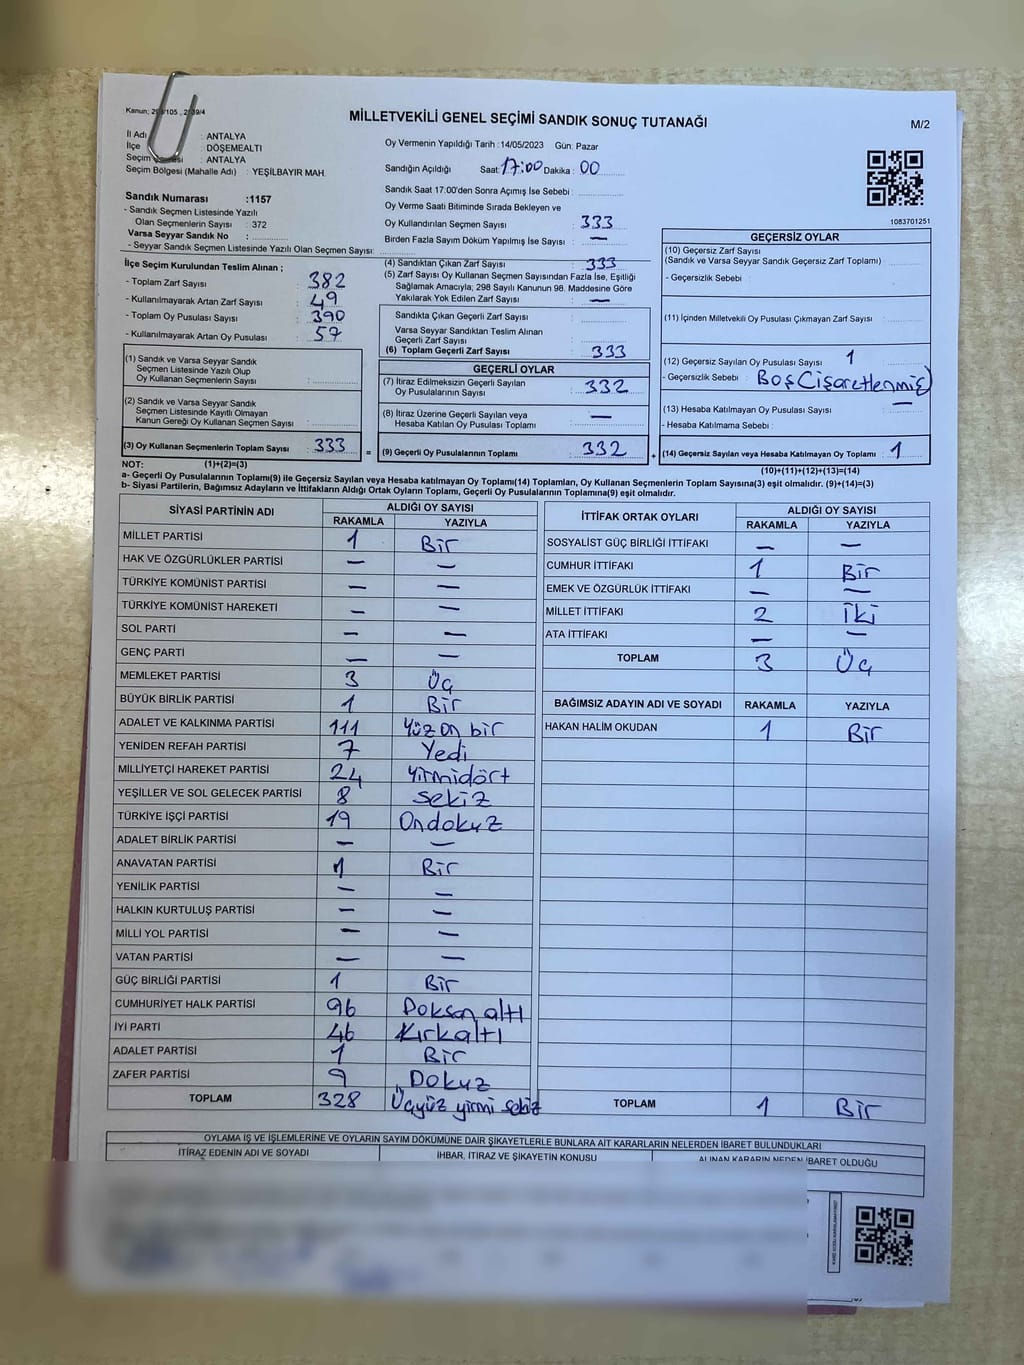 Kanun: 298/105 , 2839/4
MİLLETVEKİLİ GENEL SEÇİMİ SANDIK SONUÇ TUTANAĞI
M/2
İl Adı : ANTALYA
İlçe : DÖŞEMEALTI
Seçim : ANTALYA
Seçim Bölgesi (Mahalle Adı) : YEŞİLBAYIR MAH.
Sandık Numarası :1157
- Sandık Seçmen Listesinde Yazılı
Olan Seçmenlerin Sayısı : 372
Varsa Seyyar Sandık No :
- Seyyar Sandık Seçmen Listesinde Yazılı Olan Seçmen Sayısı:
Oy Vermenin Yapıldığı Tarih : 14/05/2023 Gün: Pazar
Sandığın Açıldığı Saat: 17:00 Dakika : 00
Sandık Saat 17.00'den Sonra Açımış İse Sebebi :
Oy Verme Saati Bitiminde Sırada Bekleyen ve
Oy Kullandırılan Seçmen Sayısı : 333
Birden Fazla Sayım Döküm Yapılmış İse Sayısı : —
1083701251
İlçe Seçim Kurulundan Teslim Alınan ;
- Toplam Zarf Sayısı : 382
- Kullanılmayarak Artan Zarf Sayısı : 49
- Toplam Oy Pusulası Sayısı : 390
- Kullanılmayarak Artan Oy Pusulası : 57
(1) Sandık ve Varsa Seyyar Sandık
Seçmen Listesinde Yazılı Olup
Oy Kullanan Seçmenlerin Sayısı :
(2) Sandık ve Varsa Seyyar Sandık
Seçmen Listesinde Kayıtlı Olmayan
Kanun Gereği Oy Kullanan Seçmen Sayısı :
(3) Oy Kullanan Seçmenlerin Toplam Sayısı : 333
(4) Sandıktan Çıkan Zarf Sayısı : 333
(5) Zarf Sayısı Oy Kullanan Seçmen Sayısından Fazla İse, Eşitliği
Sağlamak Amacıyla; 298 Sayılı Kanunun 98. Maddesine Göre
Yakılarak Yok Edilen Zarf Sayısı : —
Sandıkta Çıkan Geçerli Zarf Sayısı :
Varsa Seyyar Sandıktan Teslim Alınan
Geçerli Zarf Sayısı :
(6) Toplam Geçerli Zarf Sayısı : 333
GEÇERLİ OYLAR
(7) İtiraz Edilmeksizin Geçerli Sayılan
Oy Pusulalarının Sayısı : 332
(8) İtiraz Üzerine Geçerli Sayılan veya
Hesaba Katılan Oy Pusulası Toplamı : —
= (9) Geçerli Oy Pusulalarının Toplamı : 332
GEÇERSİZ OYLAR
(10) Geçersiz Zarf Sayısı
(Sandık ve Varsa Seyyar Sandık Geçersiz Zarf Toplamı) :
- Geçersizlik Sebebi :
(11) İçinden Milletvekili Oy Pusulası Çıkmayan Zarf Sayısı :
(12) Geçersiz Sayılan Oy Pusulası Sayısı : 1
- Geçersizlik Sebebi : Boş (işaretlenmiş)
(13) Hesaba Katılmayan Oy Pusulası Sayısı : —
- Hesaba Katılmama Sebebi :
+ (14) Geçersiz Sayılan veya Hesaba Katılmayan Oy Toplamı : 1
NOT: (1)+(2)=(3)
(10)+(11)+(12)+(13)=(14)
a- Geçerli Oy Pusulalarının Toplamı(9) ile Geçersiz Sayılan veya Hesaba katılmayan Oy Toplamı(14) Toplamları, Oy Kullanan Seçmenlerin Toplam Sayısına(3) eşit olmalıdır. (9)+(14)=(3)
b- Siyasi Partilerin, Bağımsız Adayların ve İttifakların Aldığı Ortak Oyların Toplamı, Geçerli Oy Pusulalarının Toplamına(9) eşit olmalıdır.
SİYASİ PARTİNİN ADI ALDIĞI OY SAYISI
RAKAMLA YAZIYLA
MİLLET PARTİSİ 1 Bir
HAK VE ÖZGÜRLÜKLER PARTİSİ — —
TÜRKİYE KOMÜNİST PARTİSİ — —
TÜRKİYE KOMÜNİST HAREKETİ — —
SOL PARTİ — —
GENÇ PARTİ — —
MEMLEKET PARTİSİ 3 Üç
BÜYÜK BİRLİK PARTİSİ 1 Bir
ADALET VE KALKINMA PARTİSİ 111 Yüz on bir
YENİDEN REFAH PARTİSİ 7 Yedi
MİLLİYETÇİ HAREKET PARTİSİ 24 Yirmidört
YEŞİLLER VE SOL GELECEK PARTİSİ 8 Sekiz
TÜRKİYE İŞÇİ PARTİSİ 19 Ondokuz
ADALET BİRLİK PARTİSİ — —
ANAVATAN PARTİSİ 1 Bir
YENİLİK PARTİSİ — —
HALKIN KURTULUŞ PARTİSİ — —
MİLLİ YOL PARTİSİ — —
VATAN PARTİSİ — —
GÜÇ BİRLİĞİ PARTİSİ 1 Bir
CUMHURİYET HALK PARTİSİ 96 Doksan altı
İYİ PARTİ 46 Kırkaltı
ADALET PARTİSİ 1 Bir
ZAFER PARTİSİ 9 Dokuz
TOPLAM 328 Üçyüz yirmi sekiz
İTTİFAK ORTAK OYLARI ALDIĞI OY SAYISI
RAKAMLA YAZIYLA
SOSYALİST GÜÇ BİRLİĞİ İTTİFAKI — —
CUMHUR İTTİFAKI 1 Bir
EMEK VE ÖZGÜRLÜK İTTİFAKI — —
MİLLET İTTİFAKI 2 İki
ATA İTTİFAKI — —
TOPLAM 3 Üç
BAĞIMSIZ ADAYIN ADI VE SOYADI RAKAMLA YAZIYLA
HAKAN HALİM OKUDAN 1 Bir
TOPLAM 1 Bir
OYLAMA İŞ VE İŞLEMLERİNE VE OYLARIN SAYIM DÖKÜMÜNE DAİR ŞİKAYETLERLE BUNLARA AİT KARARLARIN NELERDEN İBARET BULUNDUKLARI
İTİRAZ EDENİN ADI VE SOYADI İHBAR, İTİRAZ VE ŞİKAYETİN KONUSU ALINAN KARARIN NEDEN İBARET OLDUĞU